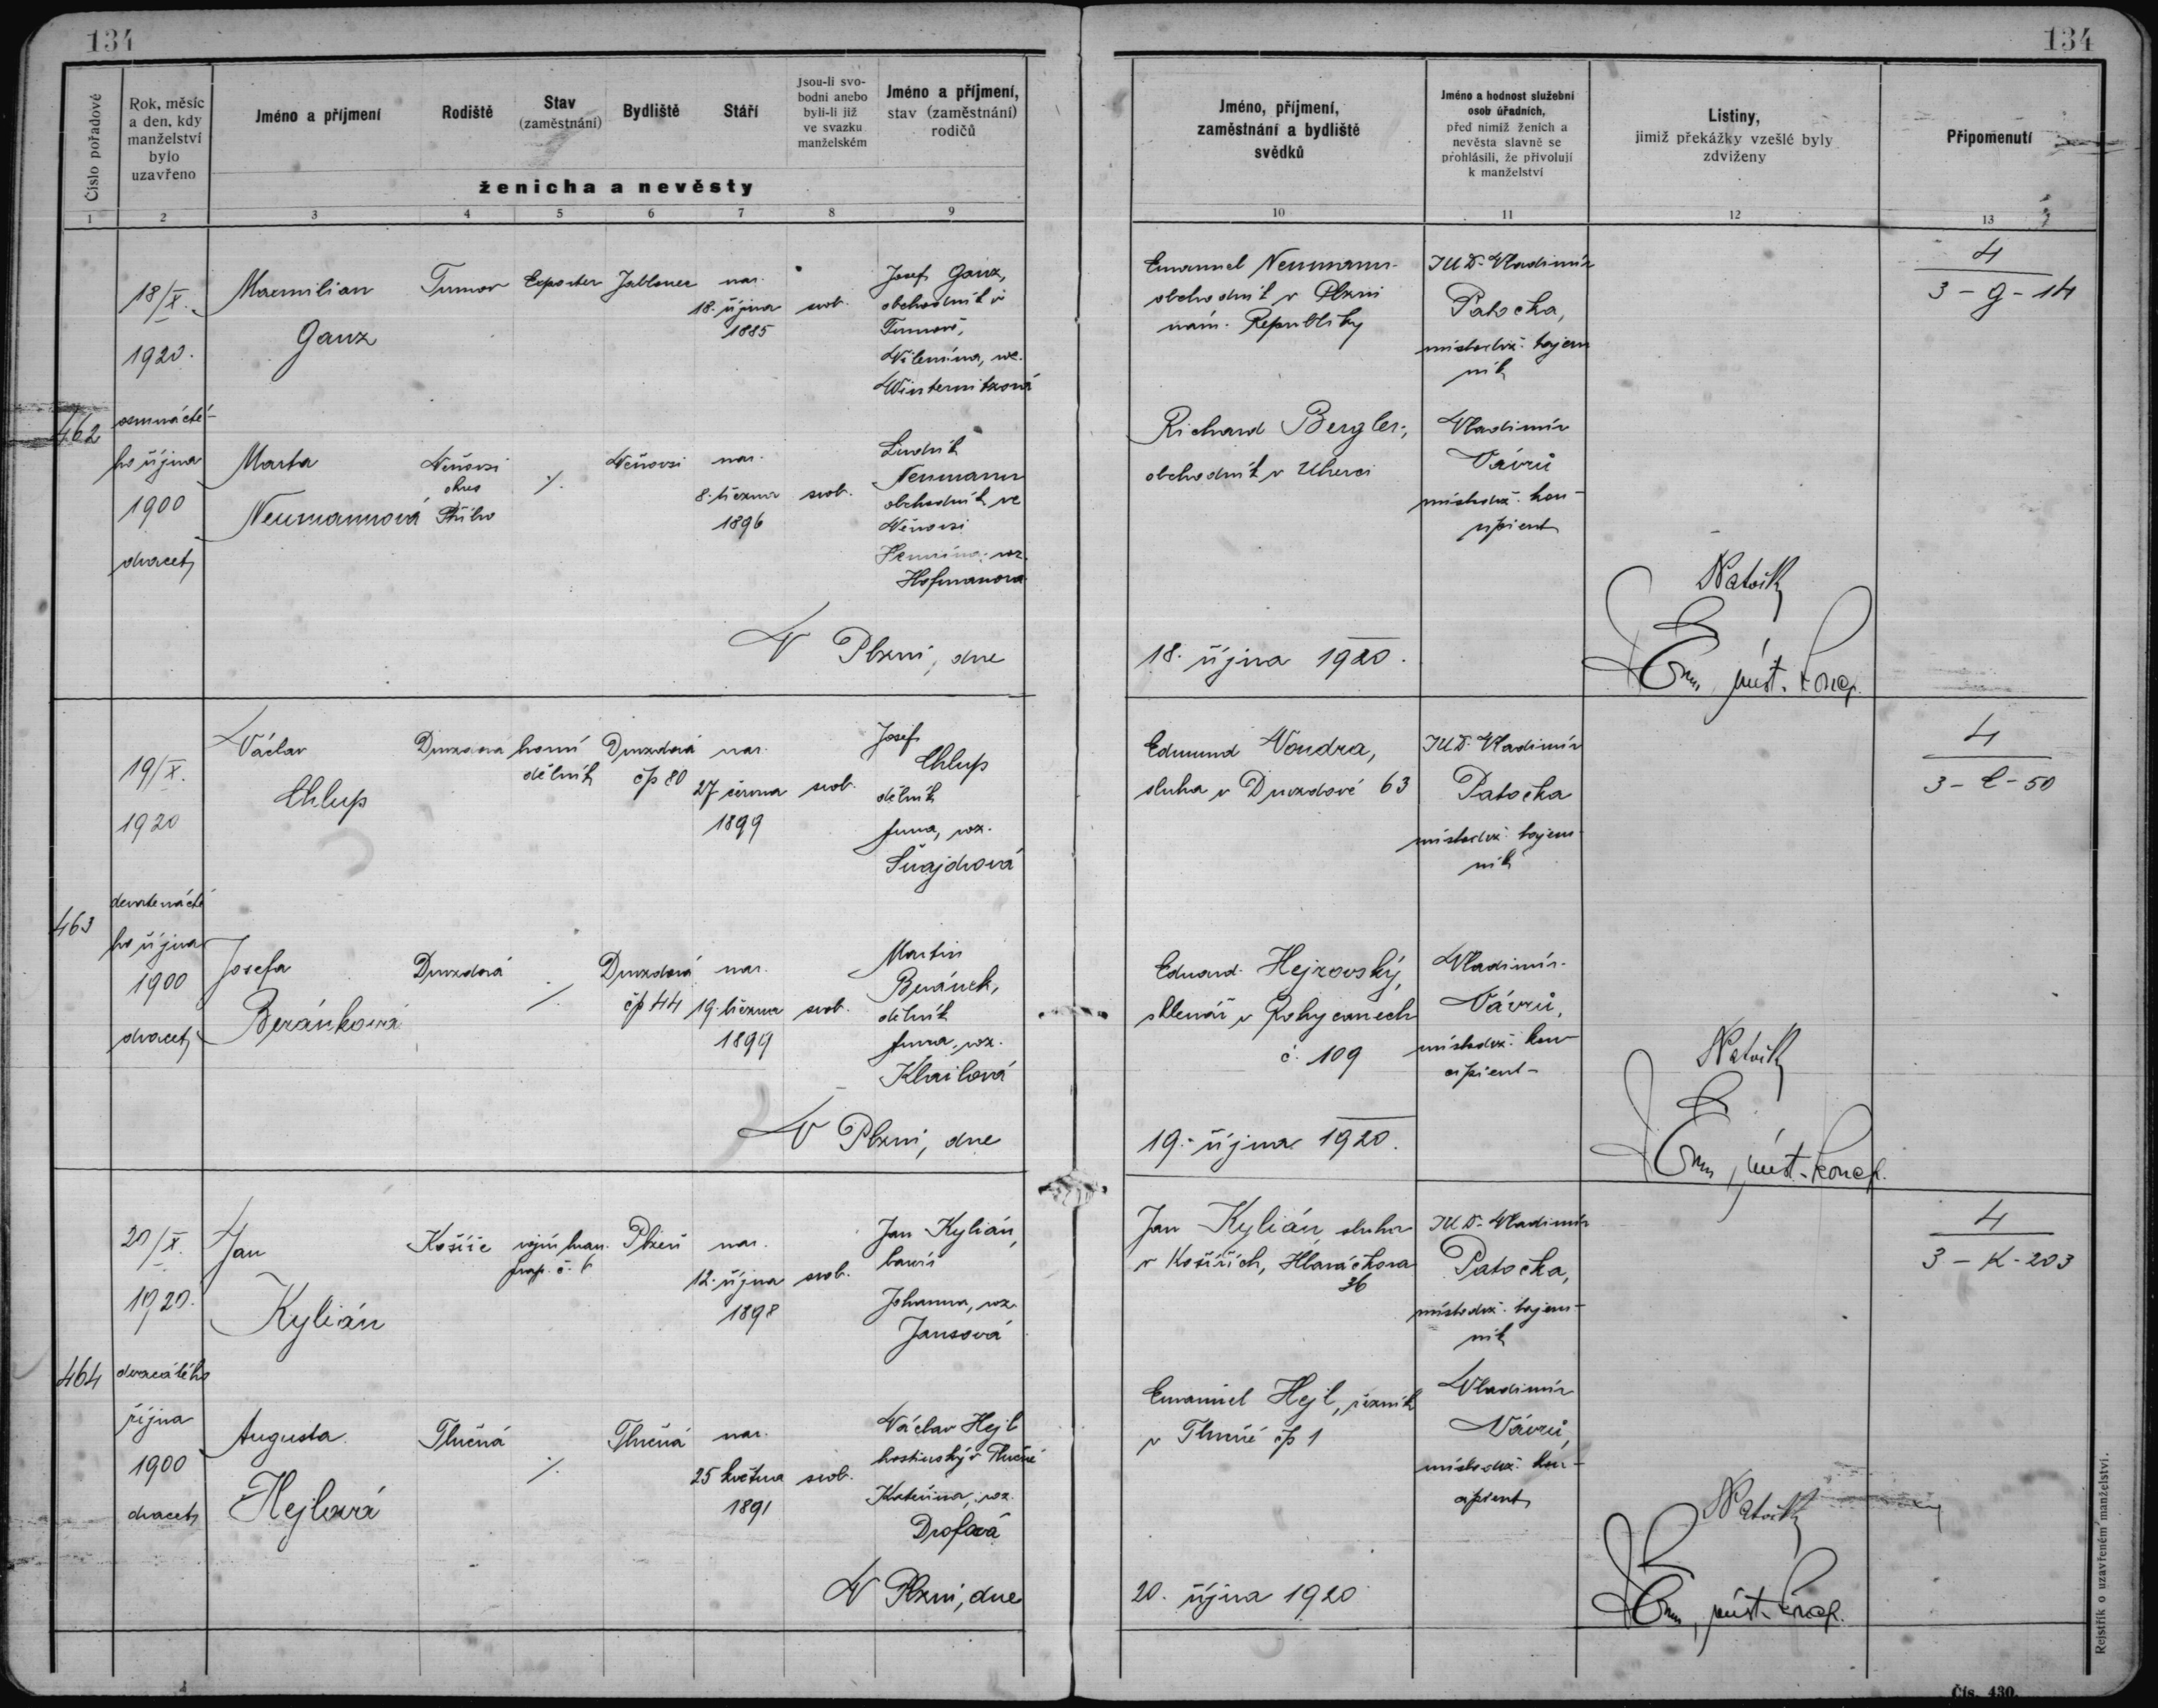 134
134
Číslo pořadové
Rok, měsíc
a den, kdy
manželství
bylo
uzavřeno
Jméno a příjmení
Rodiště
Stav
(zaměstnání)
Bydliště
Stáří
Jsou-li svo-
bodni anebo
byli-li již
ve svazku
manželském
Jméno a příjmení,
stav (zaměstnání)
rodičů
ženicha a nevěsty
1 2 3 4 5 6 7 8 9
Jméno, příjmení,
zaměstnání a bydliště
svědků
Jméno a hodnost služební
osob úřadních,
před nimiž ženich a
nevěsta slavně se
prohlásili, že přivolují
k manželství
Listiny,
jimiž překážky vzešlé byly
zdviženy
Připomenutí
10 11 12 13
462
18/X.
1920.
osmnácté-
ho října
1900
dvacet
Maxmilian
Ganz
Turnov
Exporter
Jablonec
nar.
18. října
1885
svob.
Josef Ganz,
obchodník v
Turnově,
Vilemína, roz.
Winternitzová
Marta
Neumannová
okres
Stříbro
./.
nar.
8. března
1896
svob.
Ludvík
Neumann
obchodník ve
Hermína, roz.
Hofmanova
V Plzni, dne
Emanuel Neumann
obchodník v Plzni
nám. Republiky
JUDr. Vladimír
Patočka,
místodrž. tajem
ník
Richard Bergler,
obchodník v
Vladimír
Vávrů
místodrž. kon-
cipient
18. října 1920.
míst. koncp.
4
3 - G - 14
463
19/X.
1920
devatenácté
ho října
1900
dvacet
Václav
Chlup
Druzdová
horní
dělník
Druzdová
čp 80
nar.
27 června
1899
svob.
Josef
Chlup
dělník
Anna, roz.
Švajdrová
Josefa
Beránková
Druzdová
./.
Druzdová
čp 44
nar.
19. března
1899
svob.
Martin
Beránek,
dělník
Anna, roz.
Klailová
V Plzni, dne
Edmund Vondra,
sluha v Druzdové 63
JUDr. Vladimír
Patočka
místodrž. tajem-
ník
Eduard Hejrovský,
sklenář v Rokycanech
č. 109
Vladimír
Vávrů,
místodrž. kon-
cipient
19. října 1920.
míst. koncp.
4
3 - C - 50
464
20/X.
1920.
dvacátého
října
1900
dvacet
Jan
Kylián
Košíře
prap. č. 6
Plzeň
nar.
12. října
1898
svob.
Jan Kylián,
Johanna, roz.
Jansová
Augusta
Hejlová
Tlučná
./.
Tlučná
nar.
25 května
1891
svob.
Václav Hejl
hostinský v Tlučné
Kateřina, roz.
Drofová
V Plzni, dne
Jan Kylián, sluha
v Košířích, Hlaváčkova
36
JUDr. Vladimír
Patočka,
místodrž. tajem-
ník
Emanuel Hejl, řezník
v Tlučné čp 1
Vladimír
Vávrů,
místodrž. kon-
cipient
20. října 1920
míst. koncp.
4
3 - K - 203
Rejstřík o uzavřeném manželství.
Čís. 430.